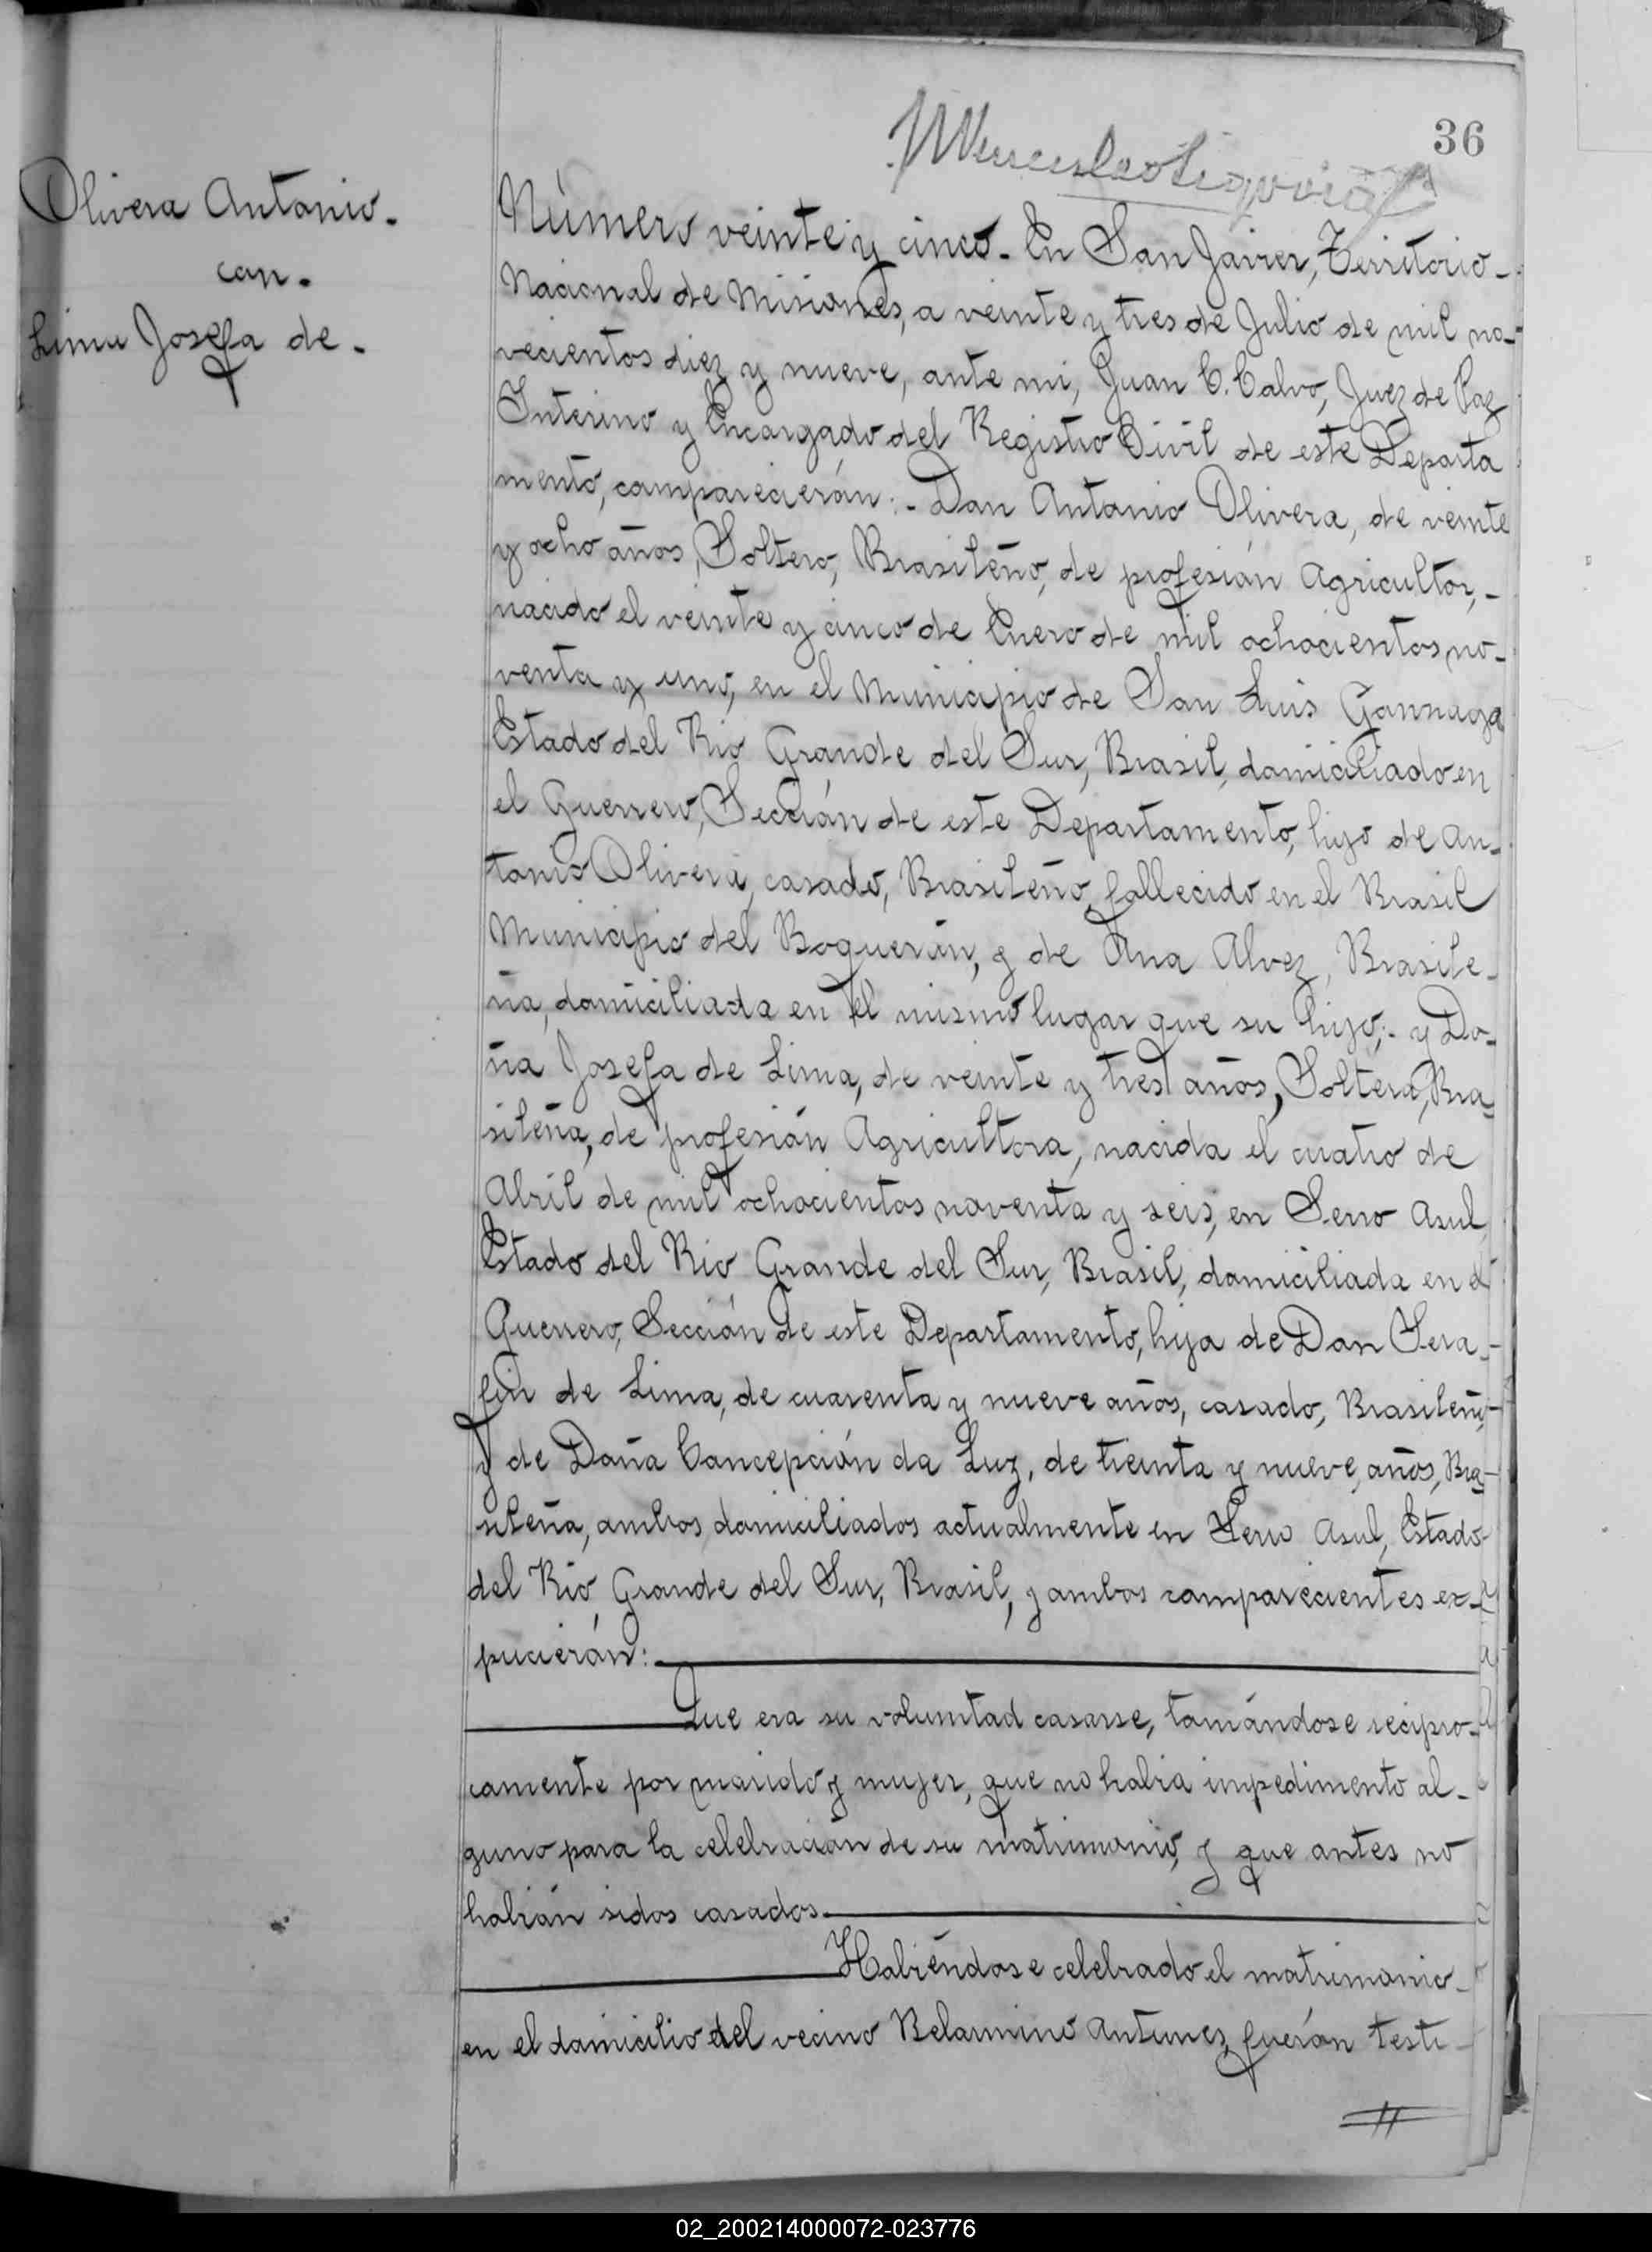 36
Olivera Antonio.
con.
Lima Josefa de.
Número veinte y cinco. En San Javier, Territorio
Nacional de Misiones, a veinte y tres de Julio de mil no-
vecientos diez y nueve, ante mi, Juan C. Calvo, Juez de Paz
Interino y Encargado del Registro Civil de este Departa
mento, comparecierón:- Don Antonio Olivera, de veinte
y ocho años, Soltero, Brasileño, de profesión Agricultor,-
nacido el veinte y cinco de Enero de mil ochocientos no-
venta y uno, en el Municipio de San Luis Gonzaga
Estado del Rio Grande del Sur, Brasil, domiciliado en
el Guerrero, Sección de este Departamento, hijo de An-
tonio Olivera, casado, Brasileño, fallecido en el Brasil
Municipio del Boquerón, y de Ana Alvez, Brasile-
ña, domiciliada en el mismo lugar que su hijo;- y Do-
ña Josefa de Lima, de veinte y tres años, Soltera, Bra-
sileña, de profesión Agricultora, nacida el cuatro de
Abril de mil ochocientos noventa y seis, en Serro Asul,
Estado del Rio Grande del Sur, Brasil, domiciliada en el
Guerrero, Sección de este Departamento, hija de Don Sera-
fin de Lima, de cuarenta y nueve años, casado, Brasileño,
y de Doña Concepción da Luz, de treinta y nueve años, Bra-
sileña, ambos domiciliados actualmente en Serro Asul, Estado
del Rio Grande del Sur, Brasil, y ambos comparecientes ex-
pucierón:
Que era su voluntad casarse, tomándose recipro-
camente por marido y mujer, que no habia impedimento al-
guno para la celebración de su matrimonio, y que antes no
habián sidos casados.
Habiéndose celebrado el matrimonio
en el domicilio del vecino Belarmino Antunez, fuerón testi-
02_200214000072-023776